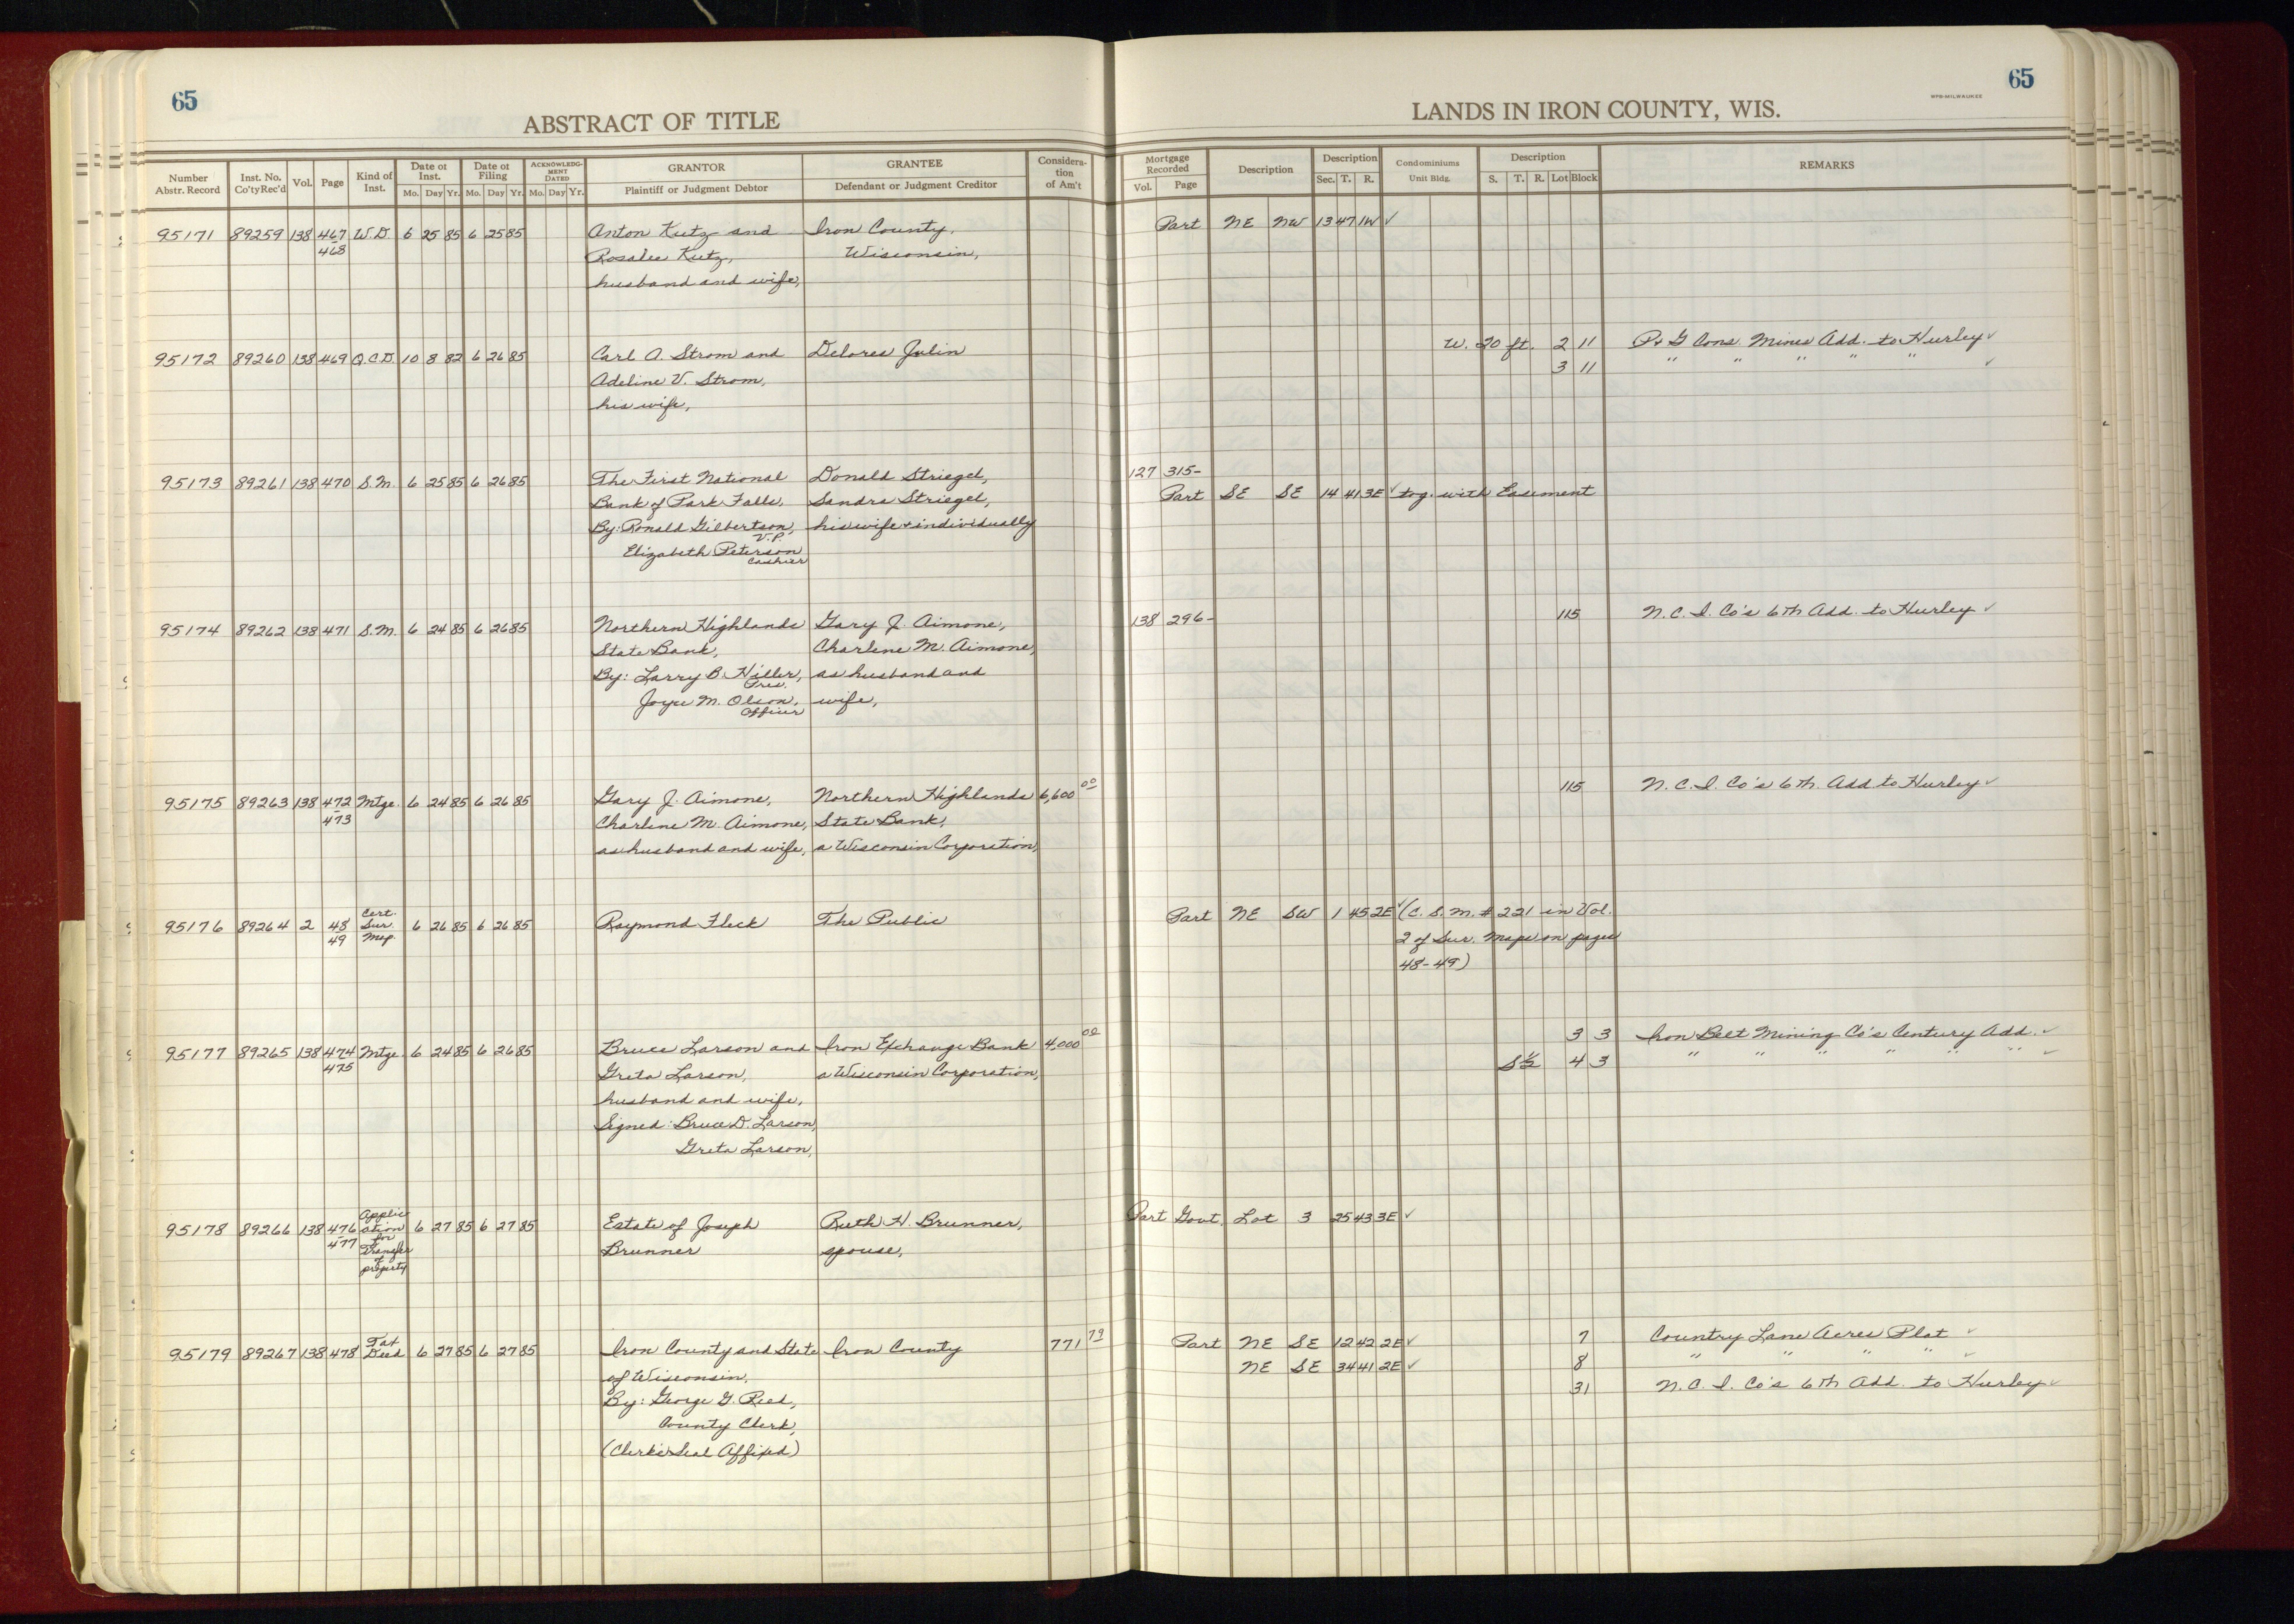 65
ABSTRACT OF TITLE
Number Abstr. Record Inst. No. Co'ty Rec'd Vol. Page Kind of Inst. Date of Inst. Mo. Day Yr. Date of Filing Mo. Day Yr. ACKNOWLEDGMENT DATED Mo. Day Yr. GRANTOR Plaintiff or Judgment Debtor GRANTEE Defendant or Judgment Creditor Consideration of Am't
95171 89259 138 467 W.D. 6 25 85 6 25 85 Anton Kutz and Iron County,
468 Rosalee Kutz, Wisconsin,
husband and wife,
95172 89260 138 469 Q.C.D. 10 8 82 6 26 85 Carl A. Strom and Delores Julin
Adeline V. Strom,
his wife,
95173 89261 138 470 S.M. 6 25 85 6 26 85 The First National Donald Striegel,
Bank of Park Falls, Sandra Striegel,
By: Ronald Gilbertson, his wife + individually
V.P.
Elizabeth Peterson
Cashier
95174 89262 138 471 S.M. 6 24 85 6 26 85 Northern Highlands Gary J. Aimone,
State Bank, Charlene M. Aimone,
By: Larry B. Hiller, as husband and
Pres.
Joyce M. Olson, wife,
Officer
95175 89263 138 472 Mtge. 6 24 85 6 26 85 Gary J. Aimone, Northern Highlands 6,600 00
473 Charlene M. Aimone, State Bank,
as husband and wife, a Wisconsin Corporation,
95176 89264 2 48 Cert. Sur. Map. 6 26 85 6 26 85 Raymond Fleck The Public
49
95177 89265 138 474 Mtge. 6 24 85 6 26 85 Bruce Larson and Iron Exchange Bank 4,000 00
475 Greta Larson, a Wisconsin Corporation,
husband and wife,
Signed: Bruce D. Larson,
Greta Larson,
95178 89266 138 476 Application for Transfer of property 6 27 85 6 27 85 Estate of Joseph Ruth H. Brunner,
477 Brunner spouse,
95179 89267 138 478 Tax Deed 6 27 85 6 27 85 Iron County and State Iron County 771 79
of Wisconsin,
By: George G. Reed,
County Clerk,
(Clerk's Seal Affixed)
65
WPB-MILWAUKEE
LANDS IN IRON COUNTY, WIS.
Mortgage Recorded Vol. Page Description Description Sec. T. R. Condominiums Unit Bldg. Description S. T. R. Lot Block REMARKS
Part NE NW 13 47 1W ✓
W. 20 ft. 2 11 P+G Cons. Mines Add. to Hurley ✓
3 11 " " " " " ✓
127 315-
Part SE SE 14 41 3E ✓ tog. with Easement
138 296- 115 N.C.I. Co's 6th Add. to Hurley ✓
115 N.C.I. Co's 6th. Add to Hurley ✓
Part NE SW 1 45 2E ✓ (C.S.M. # 221 in Vol.
2 of Sur. Maps on pages
48-49)
3 3 Iron Belt Mining Co's Century Add. ✓
S½ 4 3 " " " " " " ✓
Part Govt. Lot 3 25 43 3E ✓
Part NE SE 12 42 2E ✓ 7 Country Lane Acres Plat ✓
NE SE 34 41 2E ✓ 8 " " " " ✓
31 N.C.I. Co's 6th Add. to Hurley ✓